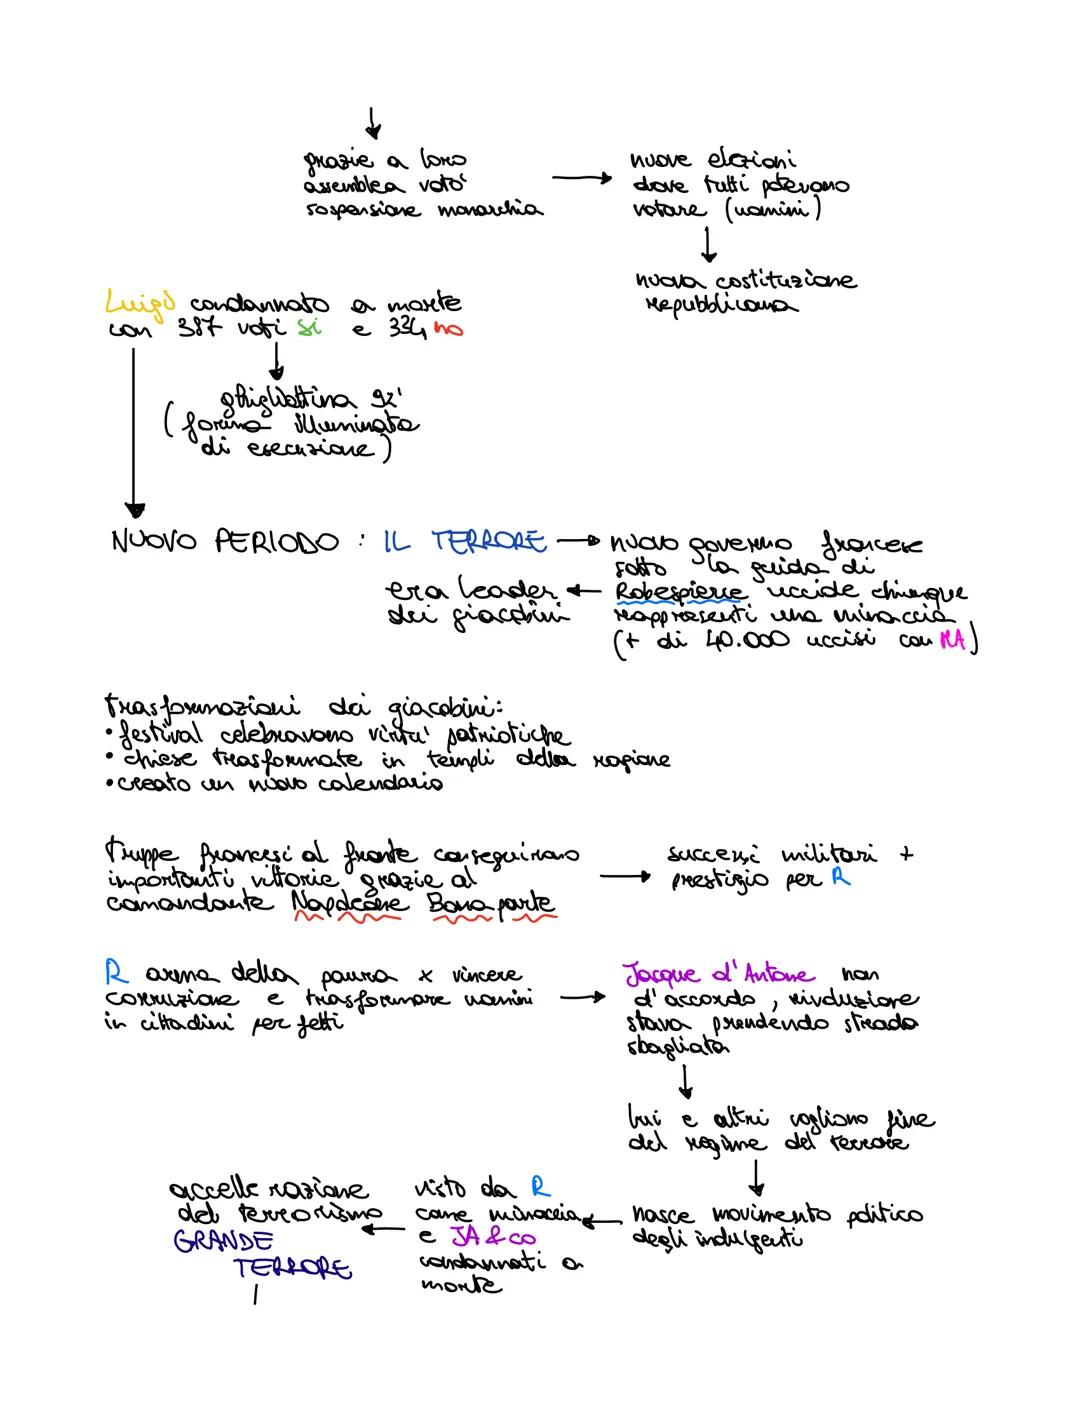 grazie a loro
assemblea votò
sospensione monarchia
nuove elezioni
dove tutti potevano
votare (uomini)
nuova costituzione
repubblicana
Luigi condannato a morte
con 387 voti si e 334 no
ghigliottina 92'
(forma illuminata
di esecuzione)
NUOVO PERIODO : IL TERRORE
nuovo governo francese
sotto la guida di
Robespierre uccide chiunque
rappresenti una minaccia
(+ di 40.000 uccisi con MA)
era leader
dei giacobini
Trasformazioni dei giacobini:
• festival celebravano virtu' patriotiche
• chiese trasformate in templi della ragione
• creato un nuovo calendario
Truppe francesi al fronte conseguirono
importanti vittorie grazie al
comandante Napoleone Bonaparte
successi militari +
prestigio per R
R arma della paura x vincere
corruzione e trasformare uomini
in cittadini perfetti
Jacque d'Antone non
d'accordo, rivoluzione
stava prendendo strada
sbagliata
lui e altri vogliono fine
del regime del terrore
nasce movimento politico
degli indulgenti
visto da R
come minaccia
e JA & co
condannati a
morte
accellerazione
del terrorismo
GRANDE
TERRORE